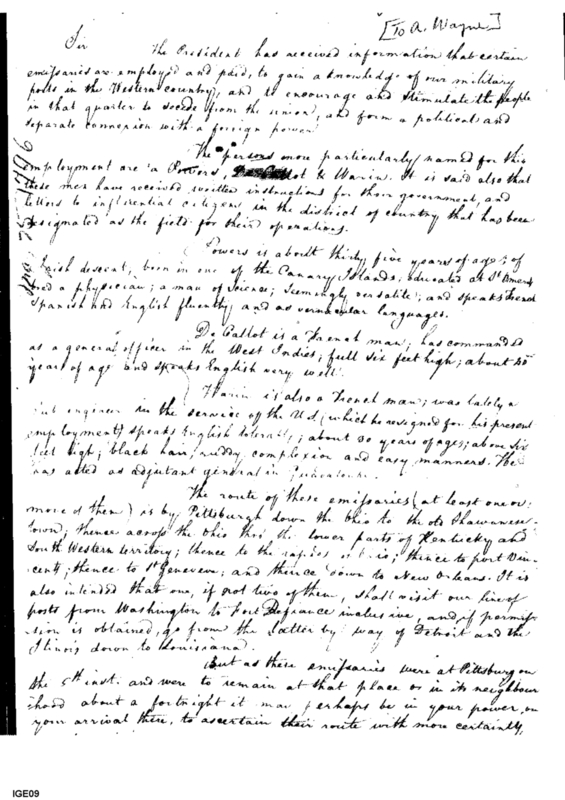 [To A. Wayne]
Sir The President has received information that certain
emissaries are employ'd and paid, to gain a knowledge of our military
posts in the Western country, and to encourage and stimulate the people
in that quarter to secede from the union, and form a political and
separate connexion with a foreign power
The persons more particularly named for this
employment are a Powers, De Callot & Warin. It is said also that
these men have received written instructions for their government, and
letters to influential citizens in the district of country that has been
designated as the field for their operations.
Powers is about thirty five years of age; of
Irish descent, born in one of the Canary Islands, educated at St Omers
bred a physician; a man of science; seemingly versatile; and speaks French
Spanish and English fluently and as vernacular languages.
De Callot is a French man; has commanded
as a general officer in the West Indies; full six feet high; about 40
years of age and speaks English very well.
Warin is also a French man; was lately a
engineer in the service of the U.S. (which he resigned for his present
employment) speaks English tolerably; about 30 years of age; above six
feet high; black hair, ruddy complexion and easy manners. He
has acted as adjutant general in
The route of those emissaries (at least one or
more of them) is by Pittsburgh down the Ohio to the old Shawanese
town; thence across the Ohio thro the lower parts of Kentucky and
South Western territory; thence to the rapids of Ohio; thence to port Vin-
cents; thence to St Genevieve; and thence down to New Orleans. It is
also intended that one, if not two of them, shall visit our line of
posts from Washington to Fort Defiance inclusive, and if permis-
sion is obtained, go from the latter by way of Detroit and the
Illinois down to Louisiana.
But as these emissaries were at Pittsburg on
the 5th inst. and were to remain at that place or in its neighbour
hood about a fortnight it may perhaps be in your power, on
your arrival there, to ascertain their route with more certainty,
IGE09